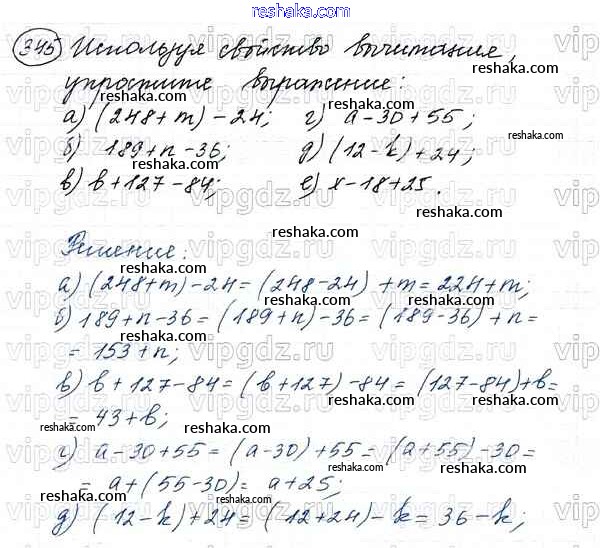 reshaka.com
345 Используя свойство вычитания,
упростите выражение:
а) (248+m)-24; г) a-30+55;
б) 189+n-36; д) (12-k)+24;
в) b+127-84; е) x-18+25.
Решение:
а) (248+m)-24=(248-24)+m=224+m;
б) 189+n-36=(189+n)-36=(189-36)+n=
=153+n;
в) b+127-84=(b+127)-84=(127-84)+b=
=43+b;
г) a-30+55=(a-30)+55=(a+55)-30=
=a+(55-30)=a+25;
д) (12-k)+24=(12+24)-k=36-k;